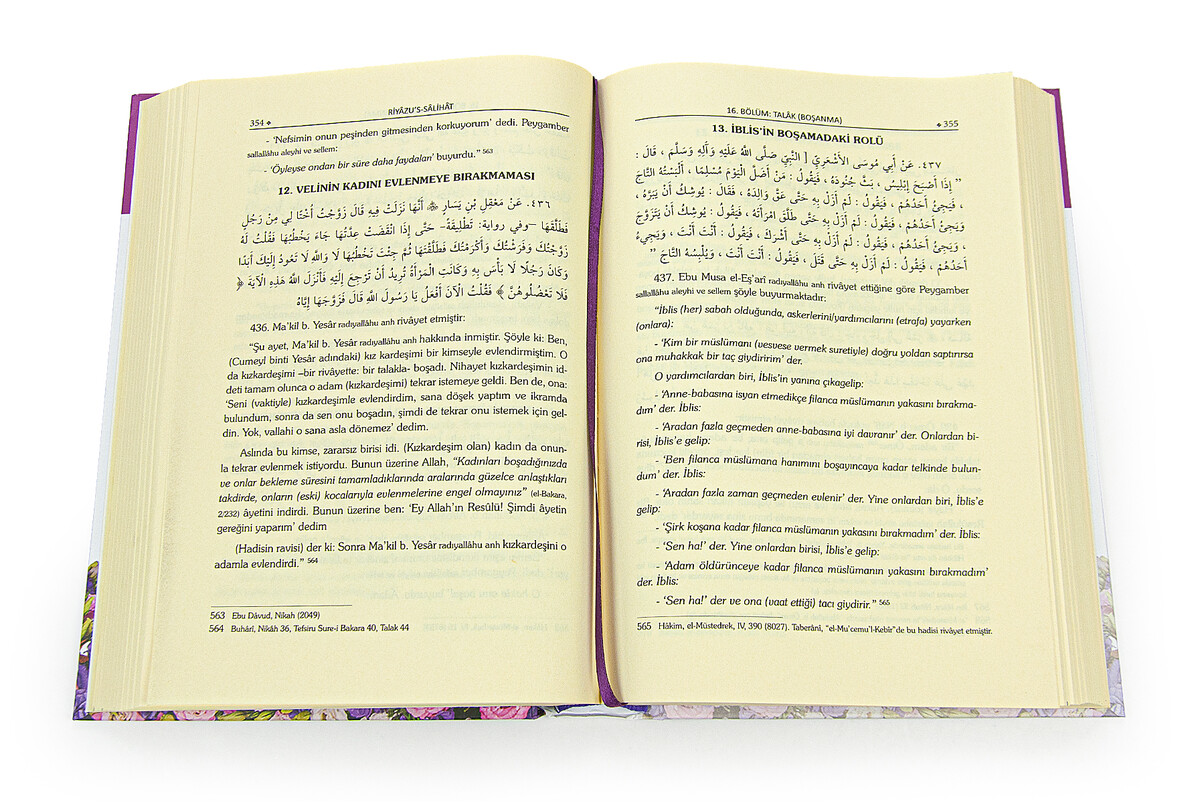 354 ❖ RİYÂZU'S-SÂLİHÂT
- 'Nefsimin onun peşinden gitmesinden korkuyorum' dedi. Peygamber
sallallâhu aleyhi ve sellem:
- 'Öyleyse ondan bir süre daha faydalan' buyurdu." 563
12. VELİNİN KADINI EVLENMEYE BIRAKMAMASI
٤٣٦. عَنْ مَعْقِلِ بْنِ يَسَارٍ ﷺ أَنَّهَا نَزَلَتْ فِيهِ قَالَ زَوَّجْتُ أُخْتًا لِي مِنْ رَجُلٍ
فَطَلَّقَهَا –وفي رواية: تَطْلِيقَةً– حَتَّى إِذَا انْقَضَتْ عِدَّتُهَا جَاءَ يَخْطُبُهَا فَقُلْتُ لَهُ
زَوَّجْتُكَ وَفَرَشْتُكَ وَأَكْرَمْتُكَ فَطَلَّقْتَهَا ثُمَّ جِئْتَ تَخْطُبُهَا لَا وَاللهِ لَا تَعُودُ إِلَيْكَ أَبَدًا
وَكَانَ رَجُلًا لَا بَأْسَ بِهِ وَكَانَتِ الْمَرْأَةُ تُرِيدُ أَنْ تَرْجِعَ إِلَيْهِ فَأَنْزَلَ اللهُ هَذِهِ الْآيَةَ ﴿
فَلَا تَعْضُلُوهُنَّ ﴾ فَقُلْتُ الْآنَ أَفْعَلُ يَا رَسُولَ اللهِ قَالَ فَزَوَّجَهَا إِيَّاهُ
436. Ma'kil b. Yesâr radıyallâhu anh rivâyet etmiştir:
"Şu ayet, Ma'kil b. Yesâr radıyallâhu anh hakkında inmiştir. Şöyle ki: Ben,
(Cumeyl binti Yesâr adındaki) kız kardeşimi bir kimseyle evlendirmiştim. O
da kızkardeşimi –bir rivâyette: bir talakla- boşadı. Nihayet kızkardeşimin id-
deti tamam olunca o adam (kızkardeşimi) tekrar istemeye geldi. Ben de, ona:
'Seni (vaktiyle) kızkardeşimle evlendirdim, sana döşek yaptım ve ikramda
bulundum, sonra da sen onu boşadın, şimdi de tekrar onu istemek için gel-
din. Yok, vallahi o sana asla dönemez' dedim.
Aslında bu kimse, zararsız birisi idi. (Kızkardeşim olan) kadın da onun-
la tekrar evlenmek istiyordu. Bunun üzerine Allah, "Kadınları boşadığınızda
ve onlar bekleme süresini tamamladıklarında aralarında güzelce anlaştıkları
takdirde, onların (eski) kocalarıyla evlenmelerine engel olmayınız" (el-Bakara,
2/232) âyetini indirdi. Bunun üzerine ben: 'Ey Allah'ın Resûlü! Şimdi âyetin
gereğini yaparım' dedim
(Hadisin ravisi) der ki: Sonra Ma'kil b. Yesâr radıyallâhu anh kızkardeşini o
adamla evlendirdi." 564
563 Ebu Dâvud, Nikah (2049)
564 Buhârî, Nikâh 36, Tefsiru Sure-i Bakara 40, Talak 44
16. BÖLÜM: TALÂK (BOŞANMA) ❖ 355
13. İBLİS'İN BOŞAMADAKİ ROLÜ
٤٣٧. عَنْ أَبِي مُوسَى الأَشْعَرِيِّ [ النَّبِيِّ صَلَّى اللهُ عَلَيْهِ وَآلِهِ وَسَلَّمَ ، قَالَ :
" إِذَا أَصْبَحَ إِبْلِيسُ ، بَثَّ جُنُودَهُ ، فَيَقُولُ : مَنْ أَضَلَّ الْيَوْمَ مُسْلِمًا ، أَلْبَسْتُهُ التَّاجَ
، فَيَجِيءُ أَحَدُهُمْ ، فَيَقُولُ : لَمْ أَزَلْ بِهِ حَتَّى عَقَّ وَالِدَهُ ، فَقَالَ : يُوشِكُ أَنْ يَبَرَّهُ ،
وَيَجِيءُ أَحَدُهُمْ ، فَيَقُولُ : لَمْ أَزَلْ بِهِ حَتَّى طَلَّقَ امْرَأَتَهُ ، فَيَقُولُ : يُوشِكُ أَنْ يَتَزَوَّجَ
، وَيَجِيءُ أَحَدُهُمْ ، فَيَقُولُ : لَمْ أَزَلْ بِهِ حَتَّى أَشْرَكَ ، فَيَقُولُ : أَنْتَ أَنْتَ ، وَيَجِيءُ
أَحَدُهُمْ ، فَيَقُولُ : لَمْ أَزَلْ بِهِ حَتَّى قَتَلَ ، فَيَقُولُ : أَنْتَ أَنْتَ ، وَيُلْبِسُهُ التَّاجَ "
437. Ebu Musa el-Eş'arî radıyallâhu anh rivâyet ettiğine göre Peygamber
sallallâhu aleyhi ve sellem şöyle buyurmaktadır:
"İblis (her) sabah olduğunda, askerlerini/yardımcılarını (etrafa) yayarken
(onlara):
- 'Kim bir müslümanı (vesvese vermek suretiyle) doğru yoldan saptırırsa
ona muhakkak bir taç giydiririm' der.
O yardımcılardan biri, İblis'in yanına çıkagelip:
- 'Anne-babasına isyan etmedikçe filanca müslümanın yakasını bırakma-
dım' der. İblis:
- 'Aradan fazla geçmeden anne-babasına iyi davranır' der. Onlardan bi-
risi, İblis'e gelip:
- 'Ben filanca müslümana hanımını boşayıncaya kadar telkinde bulun-
dum' der. İblis:
- 'Aradan fazla zaman geçmeden evlenir' der. Yine onlardan biri, İblis'e
gelip:
- 'Şirk koşana kadar filanca müslümanın yakasını bırakmadım' der. İblis:
- 'Sen ha!' der. Yine onlardan birisi, İblis'e gelip:
- 'Adam öldürünceye kadar filanca müslümanın yakasını bırakmadım'
der. İblis:
- 'Sen ha!' der ve ona (vaat ettiği) tacı giydirir." 565
565 Hâkim, el-Müstedrek, IV, 390 (8027). Taberânî, "el-Mu'cemu'l-Kebîr"de bu hadisi rivâyet etmiştir.